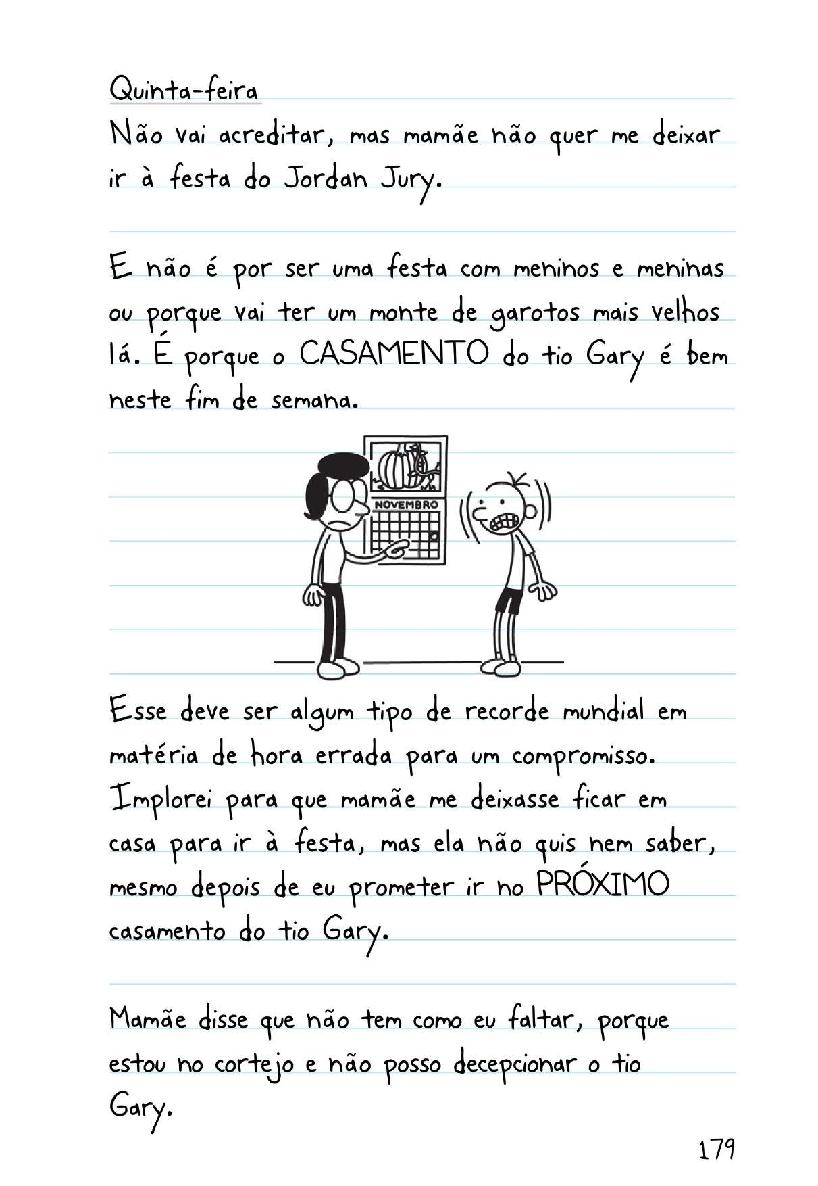 Quinta-feira
Não vai acreditar, mas mamãe não quer me deixar
ir à festa do Jordan Jury.
E não é por ser uma festa com meninos e meninas
ou porque vai ter um monte de garotos mais velhos
lá. É porque o CASAMENTO do tio Gary é bem
neste fim de semana.
NOVEMBRO
Esse deve ser algum tipo de recorde mundial em
matéria de hora errada para um compromisso.
Implorei para que mamãe me deixasse ficar em
casa para ir à festa, mas ela não quis nem saber,
mesmo depois de eu prometer ir no PRÓXIMO
casamento do tio Gary.
Mamãe disse que não tem como eu faltar, porque
estou no cortejo e não posso decepcionar o tio
Gary.
179